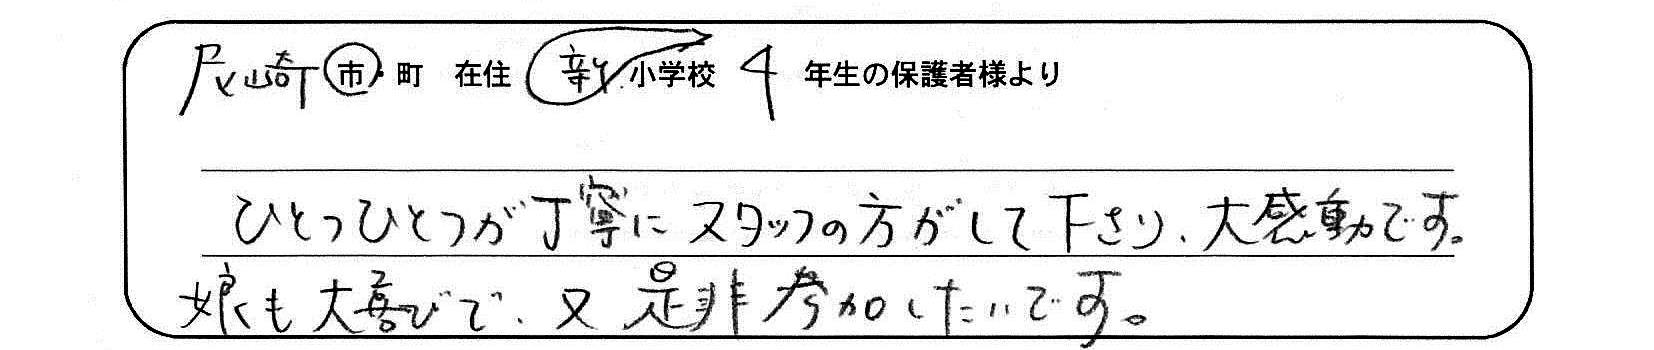 尼崎市・町 在住 新小学校 4 年生の保護者様より
ひとつひとつが丁寧にスタッフの方がして下さり、大感動です。
娘も大喜びで、又是非参加したいです。